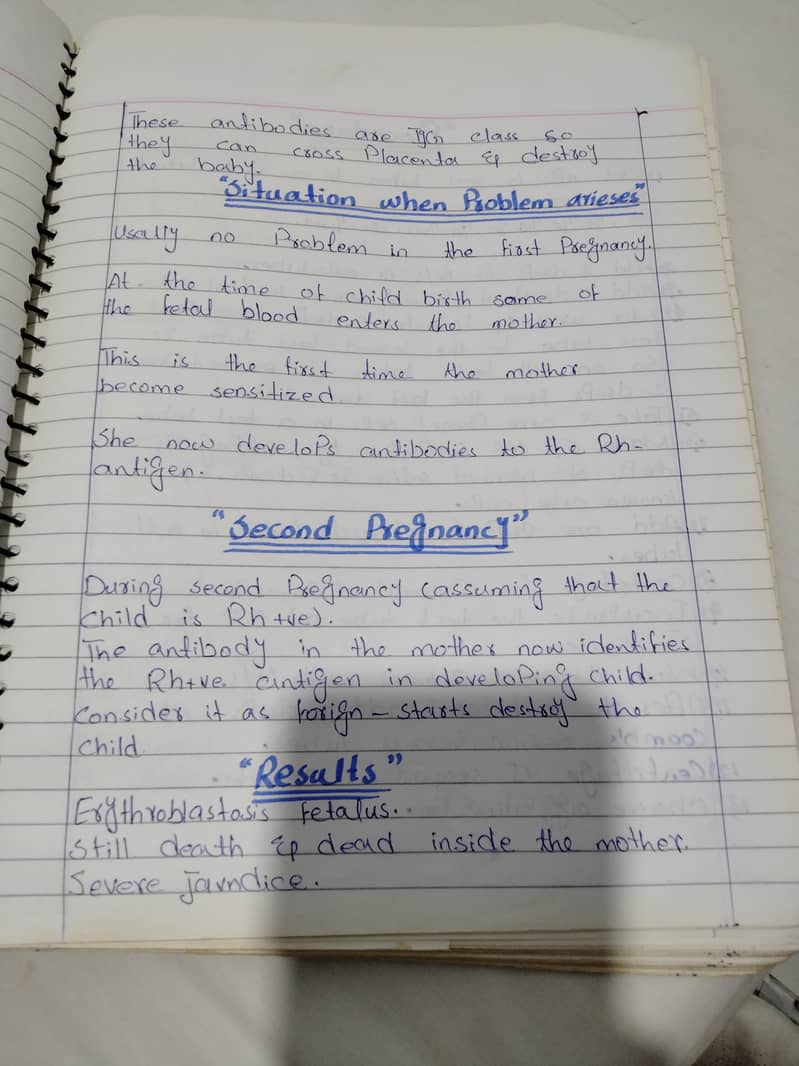 These antibodies are IgG class so
they can cross Placenta & destroy
the baby.
"Situation when Problem arieses"
Usally no Problem in the first Pregnancy.
At the time of child birth some of
the fetal blood enters the mother.
This is the first time the mother
become sensitized.
She now develoPs antibodies to the Rh-
antigen.
"Second Pregnancy"
During second Pregnancy (assuming that the
child is Rh +ve).
The antibody in the mother now identifies
the Rh+ve antigen in develoPing child.
Consider it as forign - starts destroy the
child
"Results"
Erythroblastosis fetalus.
Still death & dead inside the mother.
Severe javndice.